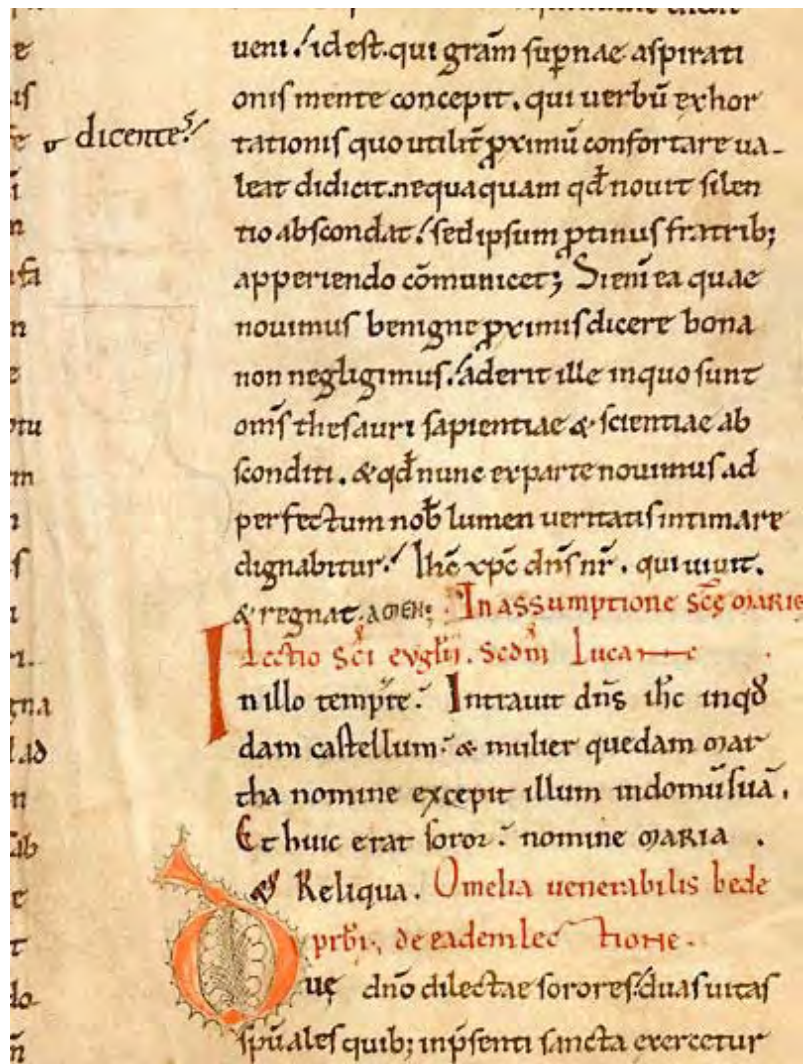 dicente
ueni. id est. qui gram̄ sup̄nae aspirati
onis mente concepit. qui uerbū exhor
tationis quo utilit̄ ꝓximū confortare ua-
leat didicit. nequaquam qd̄ nouit silen
tio abscondat. sed ipsum ꝓtinus fratrib;
apperiendo cōmunicet; Si enī ea quae
nouimus benigne ꝓximis dicere bona
non negligimus. aderit ille in quo sunt
om̄s thesauri sapientiae & scientiae ab
sconditi. & qd̄ nunc ex parte nouimus ad
perfectum nob̄ lumen ueritatis intimare
dignabitur. ih̄c xp̄c dn̄s nr̄. qui uiuit.
& regnat. AMEN; In assumptione sc̄ę MARIE
Lectio sc̄i evgl̄ii. scdm̄ Lucam
In illo temp̄re. Intrauit dn̄s ih̄c in qđ
dam castellum. & mulier quedam mar
tha nomine excepit illum in domū suā.
Et huic erat soror. nomine MARIA.
& Reliqua. Omelia uenerabilis bede
prb̄i. de eadem lectione.
Duę dn̄o dilectae sorores. duas uitas
sp̄uales quib; in p̄senti sancta exercetur